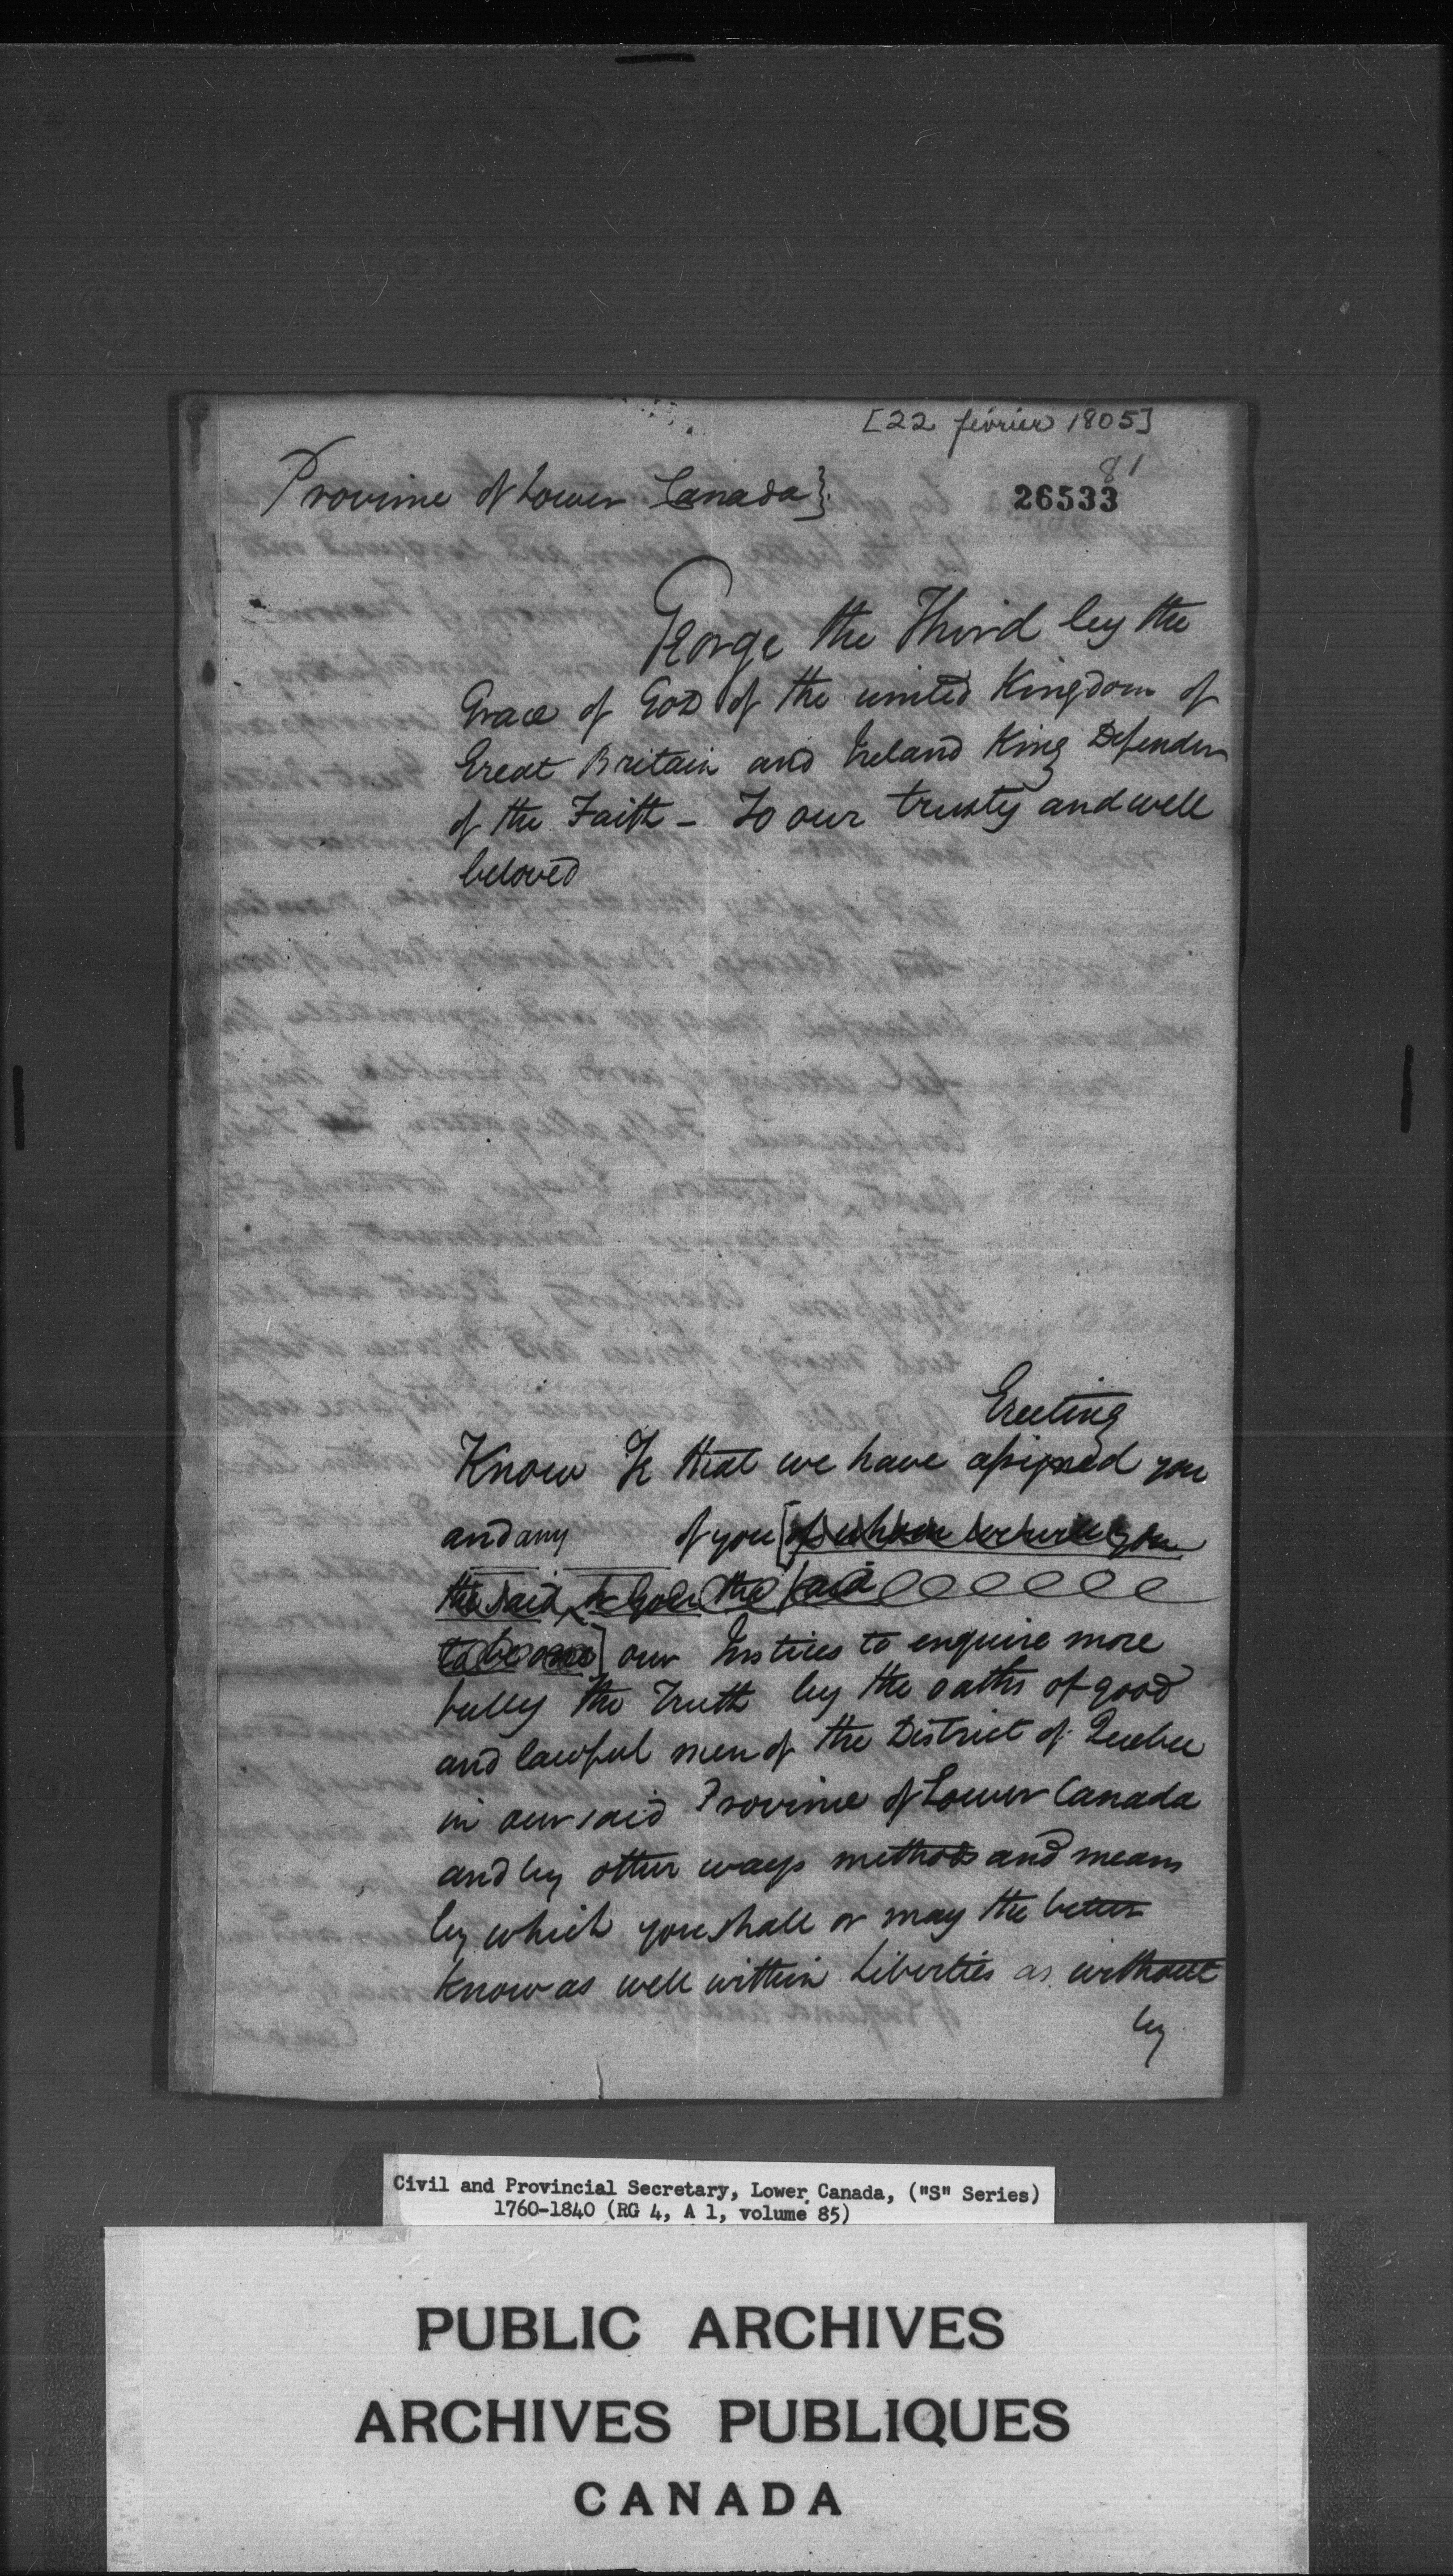 [22 février 1805]
81
Province of Lower Canada}
26533
George the Third by the
Grace of God of the united Kingdom of
Great Britain and Ireland King Defender
of the Faith - To our trusty and well
beloved
Greeting
Know Ye that we have assigned you
and any of you [of whom we will you
the said the said
to be one] our Justices to enquire more
fully the Truth by the oaths of good
and lawful men of the District of Quebec
in our said Province of Lower Canada
and by other ways methods and means
by which you shall or may the better
know as well within Liberties as without
by
Civil and Provincial Secretary, Lower Canada, ("S" Series)
1760-1840 (RG 4, A 1, volume 85)
PUBLIC ARCHIVES
ARCHIVES PUBLIQUES
CANADA